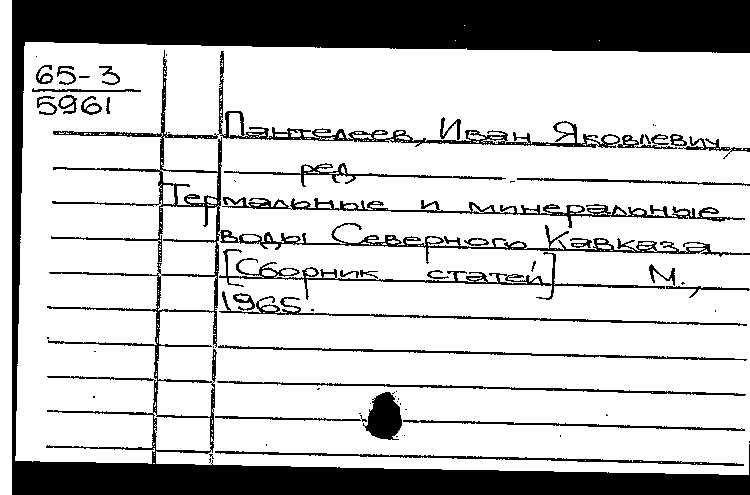 65-3
5961
Пантелеев, Иван Яковлевич,
ред
Термальные и минеральные
воды Северного Кавказа
[Сборник статей] М.,
1965.